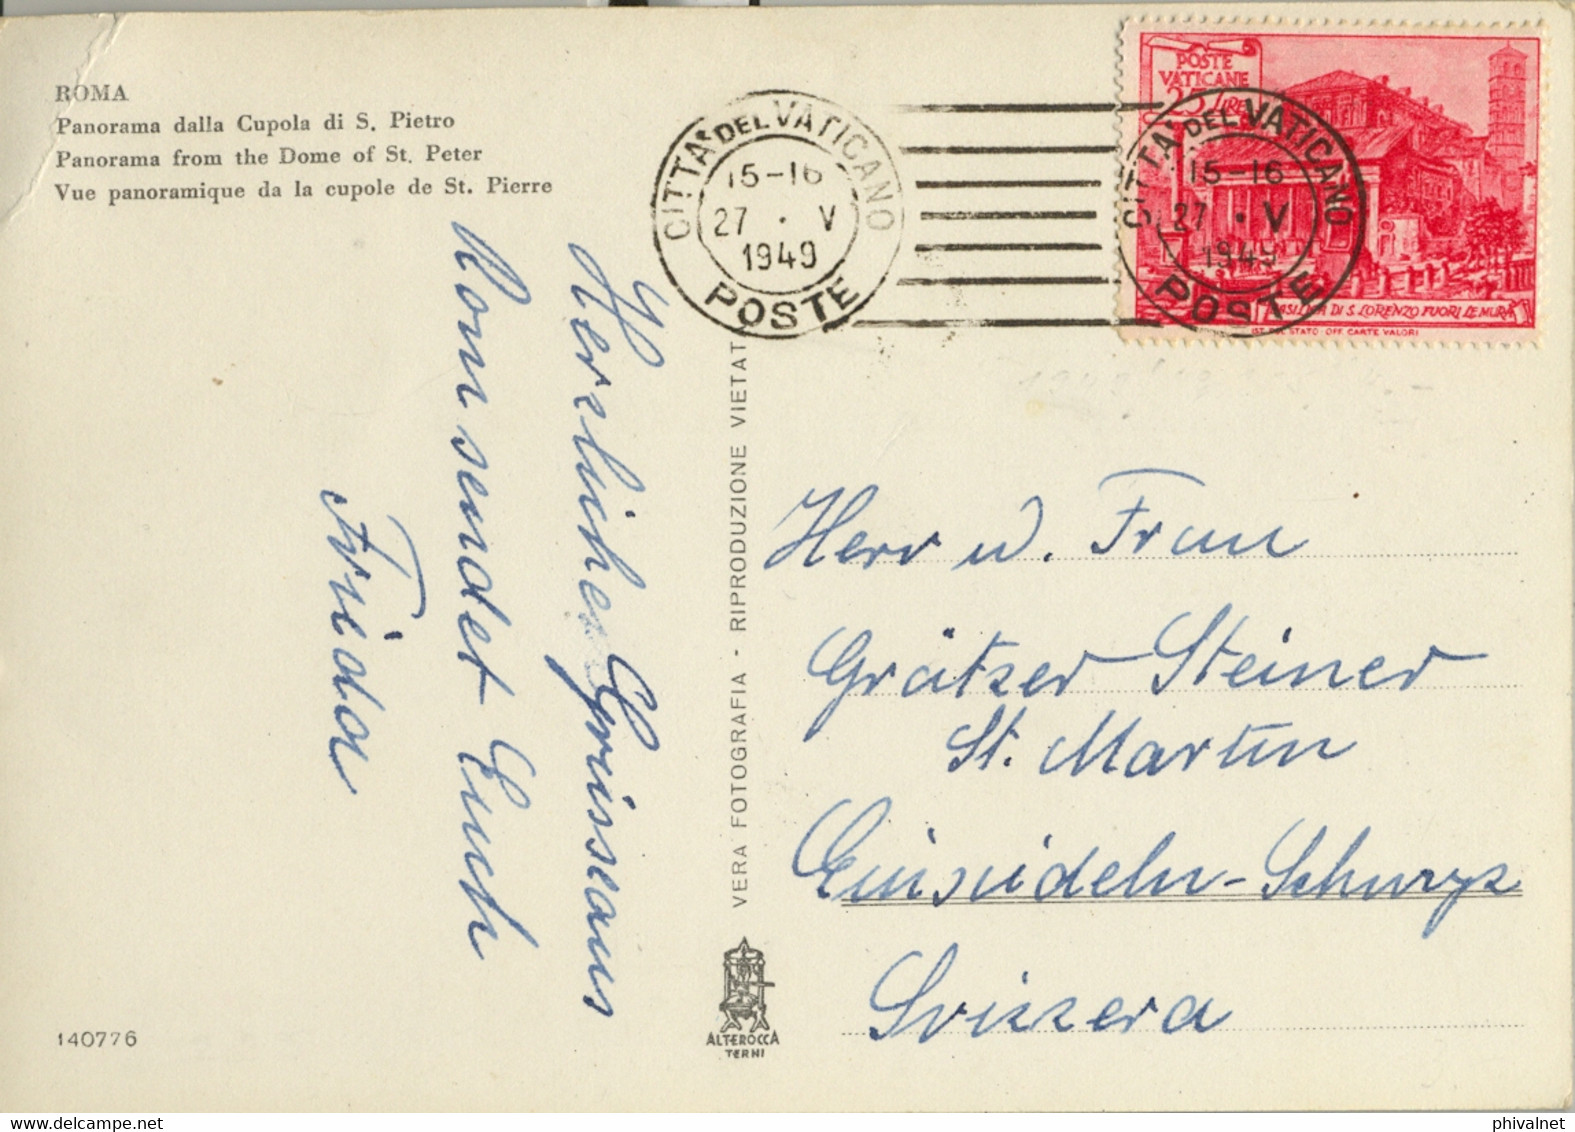 ROMA
Panorama dalla Cupola di S. Pietro
Panorama from the Dome of St. Peter
Vue panoramique da la cupole de St. Pierre
CITTA' DEL VATICANO
15-16
27 · V
1949
POSTE
POSTE
VATICANE
25 LIRE
CITTA' DEL VATICANO
15-16
27 · V
1949
POSTE
BASILICA DI S. LORENZO FUORI LE MURA
IST. POL. STATO · OFF. CARTE VALORI
Herzliche Grüsse aus
Rom sendet Euch
Frieda
VERA FOTOGRAFIA - RIPRODUZIONE VIETATA
Herr u. Frau
Grätzer Steiner
St. Martin
Einsiedeln-Schwyz
Svizzera
ALTEROCCA
TERNI
140776
phivalnet